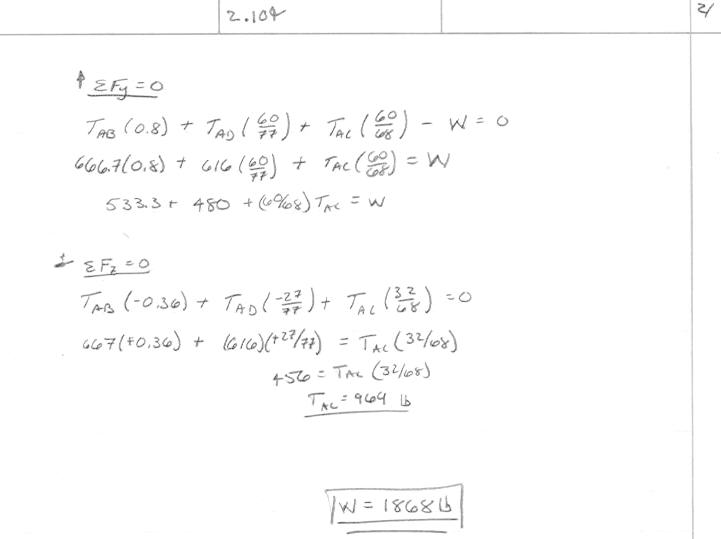 2.104
2/
↑ ΣFy = 0
TAB (0.8) + TAD (60/77) + TAC (60/68) - W = 0
666.7(0.8) + 616 (60/77) + TAC (60/68) = W
533.3 + 480 + (60/68) TAC = W
ΣFz = 0
TAB (-0.36) + TAD (-27/77) + TAC (32/68) = 0
667(+0.36) + (616)(+27/77) = TAC (32/68)
456 = TAC (32/68)
TAC = 969 lb
W = 1868 lb